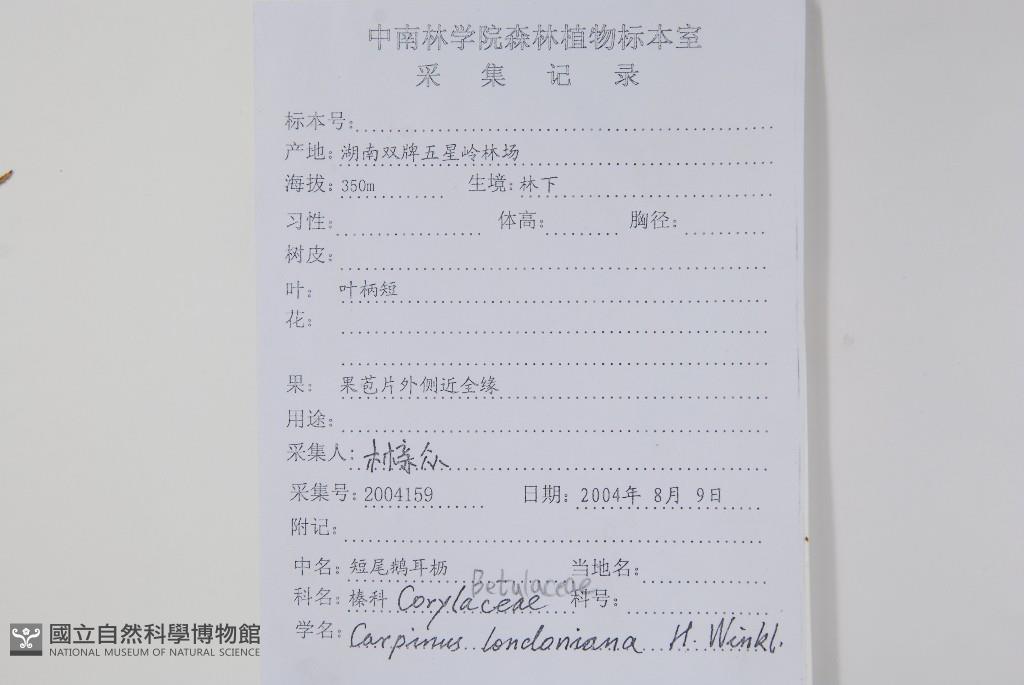 中南林学院森林植物标本室
采集记录
标本号:
产地: 湖南双牌五星岭林场
海拔: 350m 生境: 林下
习性: 体高: 胸径:
树皮:
叶: 叶柄短
花:
果: 果苞片外侧近全缘
用途:
采集人: 林亲众
采集号: 2004159 日期: 2004年 8月 9日
附记:
中名: 短尾鹅耳枥 当地名:
Betulaceae
科名: 榛科 Corylaceae 科号:
学名: Carpinus londoniana H. Winkl.
國立自然科學博物館
NATIONAL MUSEUM OF NATURAL SCIENCE